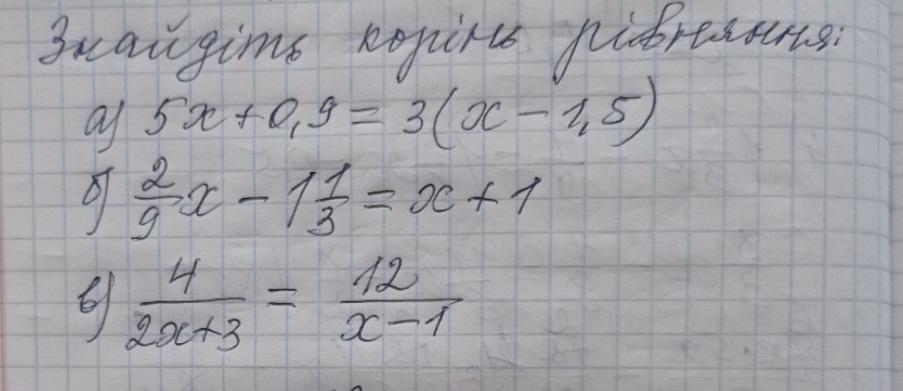 Знайдіть корінь рівняння:
а) 5x + 0,9 = 3(x - 1,5)
б) 2/9 x - 1 1/3 = x + 1
в) 4/(2x+3) = 12/(x-1)